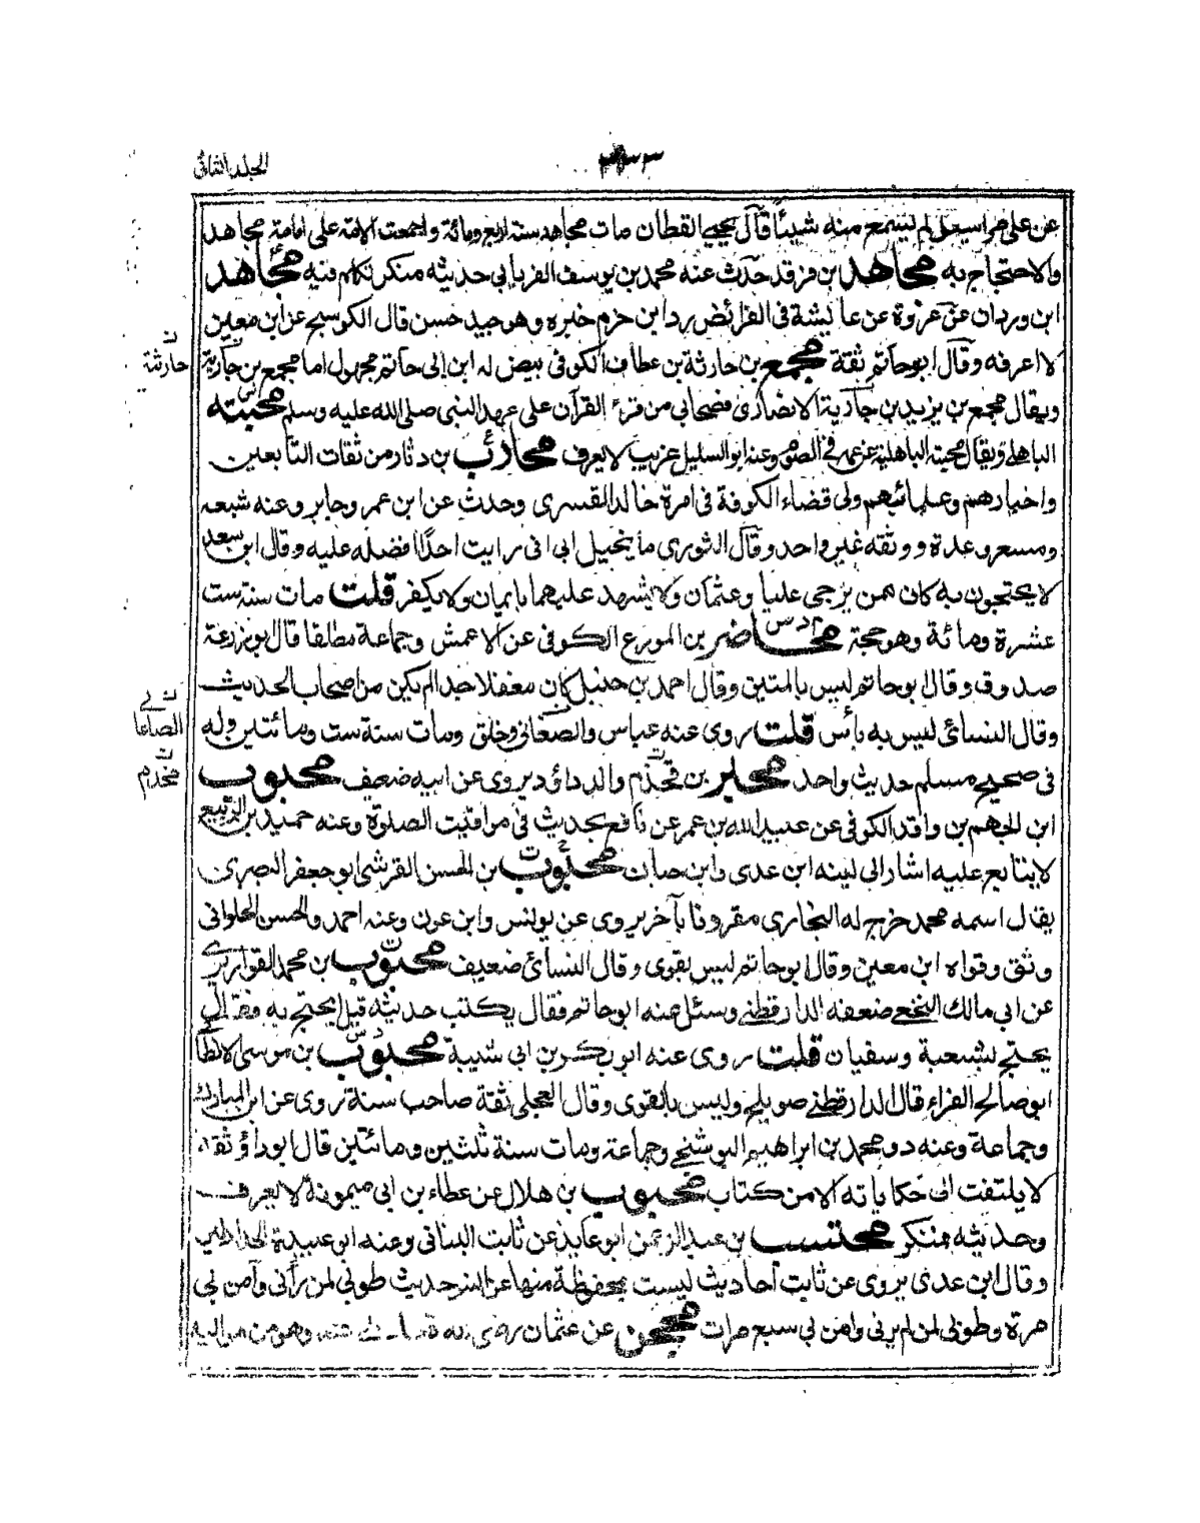 الجلد الثانی
عن علی مراسیل لم یسمع منه شیئاً قال یحیی القطان مات مجاهد سنة اربع ومائة واجمعت الامة علی امامة مجاهد
والاحتجاج به مجاهد بن فرقد حدث عنه محمد بن یوسف الفریابی حدیثه منکر تکلم فیه مجاهد
ابن وردان عن عروة عن عایشة فی الفرائض رد ابن حزم خبره وهو جید حسن قال الکوسج عن ابن معین
لا اعرفه وقال ابو حاتم ثقة مجمع بن حارثة بن عطاف الکوفی بیض له ابن ابی حاتم مجهول اما مجمع بن جاریة
ویقال مجمع بن یزید بن جاریة الانصاری فصحابی من قرء القرآن علی عهد النبی صلی الله علیه وسلم مجیبته
الباهلی ویقال مجیبة الباهلیة عن عمر فی الصوم وعنه ابو السلیل غریب لا یعرف محارب بن دثار من ثقات التابعین
واخیارهم وعلمائهم ولی قضاء الکوفة فی امرة خالد القسری وحدث عن ابن عمر وجابر وعنه شعبه
ومسعر وعدة ووثقه غیر واحد وقال الثوری ما یخیل الی انی رایت احدًا افضله علیه وقال ابن سعد
لا یحتجون به کان ممن یرجی علیا وعثمان ولا یشهد علیهما بایمان ولا بکفر قلت مات سنة ست
عشرة ومائة وهو حجة محاضر بن المورع الکوفی عن الاعمش وجماعة مطلقا قال ابو زرعة
صدوق وقال ابو حاتم لیس بالمتین وقال احمد بن حنبل کان مغفلا جدا لم یکن من اصحاب الحدیث
وقال النسائی لیس به بأس قلت روی عنه عباس والصغانی وخلق ومات سنة ست ومائتین وله
فی صحیح مسلم حدیث واحد محبر بن قحذم والد داؤد یروی عن ابیه ضعیف محبوب
ابن الجهم بن واقد الکوفی عن عبید الله بن عمر عن نافع بحدیث فی مواقیت الصلوة وعنه حمید بن الربیع
لا یتابع علیه اشار الی لینه ابن عدی وابن حبان محبوب بن الحسن القرشی ابو جعفر البصری
یقال اسمه محمد خرج له البخاری مقرونا بآخر یروی عن یونس وابن عون وعنه احمد والحسن الحلوانی
وثق وقواه ابن معین وقال ابو حاتم لیس بقوی وقال النسائی ضعیف محبوب بن محمد القواریری
عن ابی مالک النخعی ضعفه الدارقطنی وسئل عنه ابو حاتم فقال یکتب حدیثه قیل یحتج به فقال
یحتج بشعبة وسفیان قلت روی عنه ابو بکر بن ابی شیبة محبوب بن موسی الانطا
ابو صالح الفراء قال الدارقطنی صویلح ولیس بالقوی وقال العجلی ثقة صاحب سنة روی عن ابن المبارک
وجماعة وعنه د ومحمد بن ابراهیم البوشنجی وجماعة ومات سنة ثلثین ومائتین قال ابو داؤ ثقة
لا یلتفت الی حکایاته الا من کتاب محبوب بن هلال عن عطاء بن ابی میمونة لا یعرف
وحدیثه منکر محتسب بن عبد الرحمن ابو عابذ عن ثابت البنانی وعنه ابو عبیدة الحداد
وقال ابن عدی یروی عن ثابت أحادیث لیست بمحفوظة منها عن انس حدیث طوبی لمن رآنی وآمن بی
مرة وطوبی لمن لم یرنی وامن بی سبع مرات محجن عن عثمان رضی الله عنه وهو من موالیه
ن
حارثة
ن
الصاغا
ن
مخذم